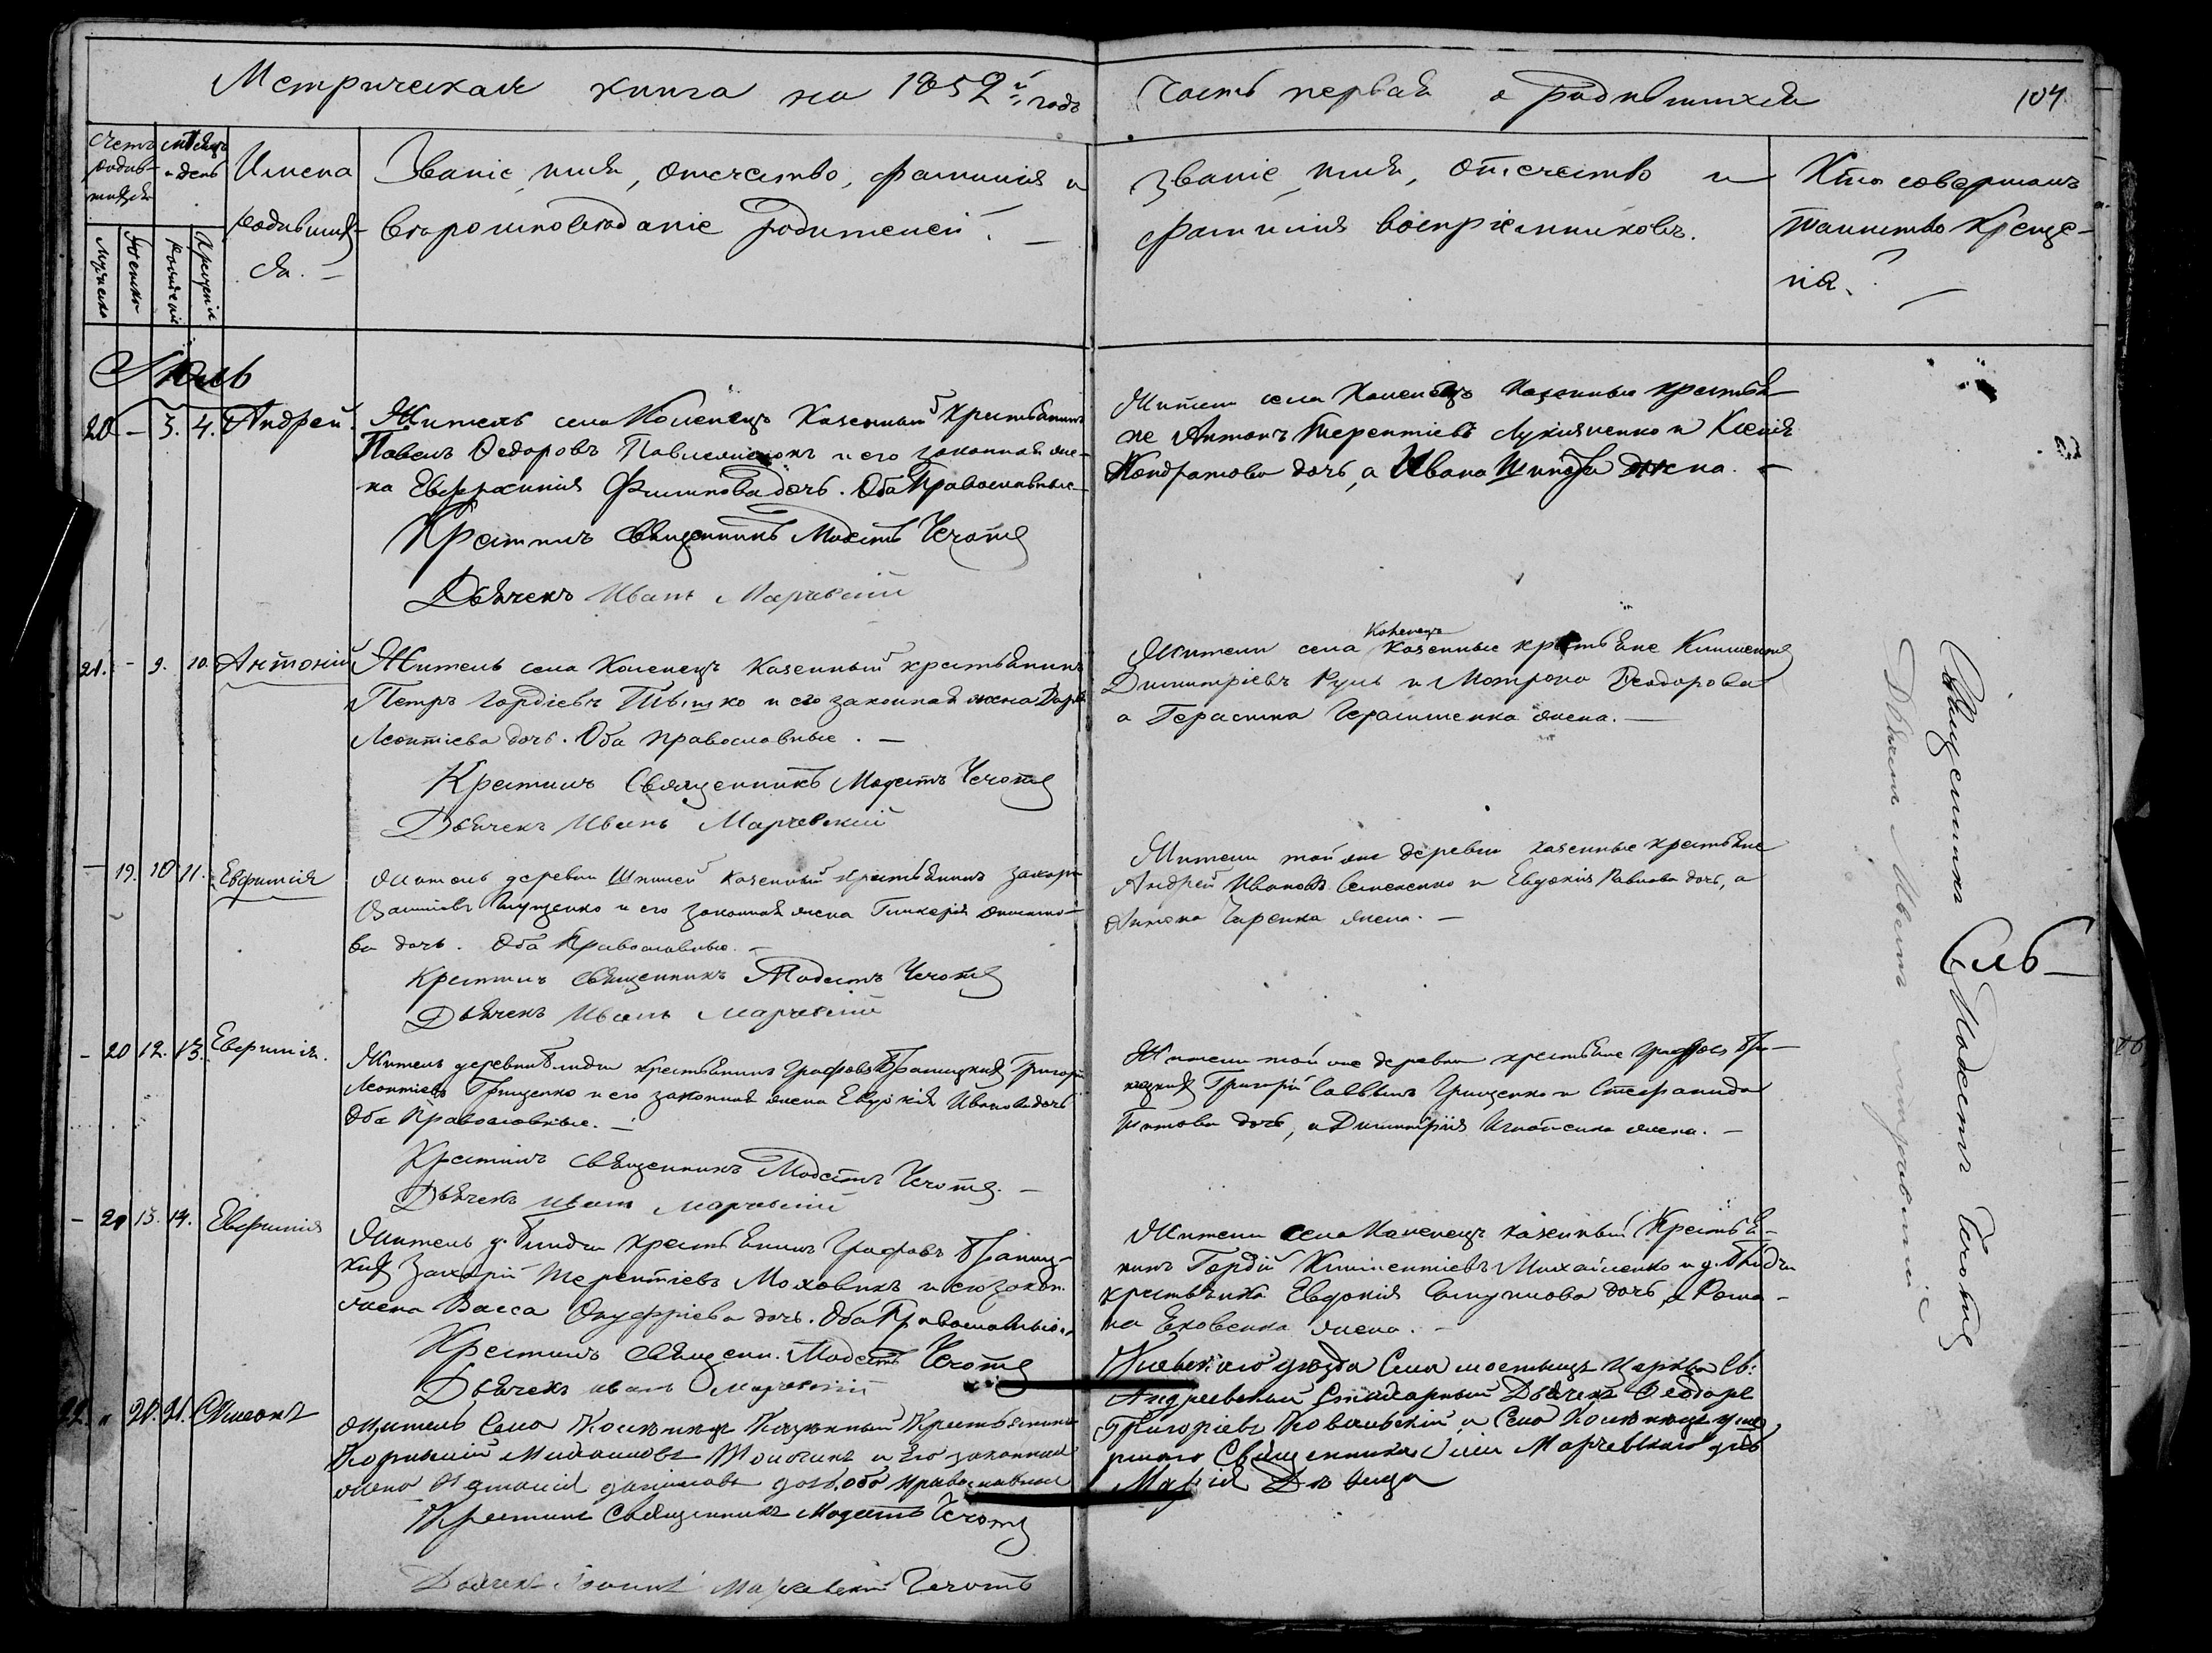 Метрическая книга на 1852й годъ
Часть первая о родившихся
104
Счетъ родив-шихся
Мѣсяцъ и день
Имена родившихъ-ся. —
Званіе, имя, отчество, фамилія и
вѣроисповѣданіе родителей. —
Званіе, имя, отчество и
фамилія воспріемниковъ.
Кто совершалъ
таинство Креще-
нія. —
Мужеска
Женска
Рожденія
Крещенія
Іюль
20 — 3. 4. Андрей.
Житель села Коленецъ Казенный Крестьянинъ
Павелъ Ѳедоровъ и его законная же-
на Евфросинія Филипова дочь. Оба Православные —
Крестилъ Священникъ Модестъ Чеготъ
Дьячекъ Иванъ Марчевскій
Жители села Коленецъ Казенные крестья-
не Антонъ Терентіевъ Лукіяненко и Ксенія
Кондратова дочь, а Ивана жена. —
21. — 9. 10. Антоній
Житель села Коленецъ Казенный крестьянинъ
Петръ Гордіевъ и его законная жена Дарія
Леонтіева дочь. Оба православные. —
Крестилъ Священникъ Модестъ Чеготъ
Дьячекъ Иванъ Марчевскій
Жители села Коленецъ Казенные крестьяне Климентій
Димитріевъ и Матрона Ѳеодорова
а Герасима Герасименка жена. —
— 19. 10. 11. Евфимія
Житель деревни Шпилей казенный крестьянинъ Захарій
и его законная жена Гликерія
ва дочь. Оба Православные. —
Крестилъ Священникъ Модестъ Чеготъ
Дьячекъ Иванъ Марчевскій
Жители той же деревни казенные крестьяне
Андрей Ивановъ и Евдокія Павлова дочь, а
жена. —
— 20 12. 13. Евфимія.
Житель деревни крестьянинъ Графовъ Браницкихъ Григорій
Леонтіевъ Грищенко и его законная жена Евдокія Иванова дочь
Оба Православные. —
Крестилъ Священникъ Модестъ Чеготъ. —
Дьячекъ Иванъ Марчевскій
Жители той же деревни крестьяне Графовъ Бра-
ницкихъ Григорій Саввинъ Грищенко и Стефанида
Титова дочь, а Димитрія жена. —
— 21 13. 14. Евфимія
Житель д. крестьянинъ Графовъ Браниц-
кихъ Захарій Терентіевъ Моховикъ и его закон.
жена Васса Онуфріева дочь. Оба Православные.
Крестилъ Священ. Модестъ Чеготъ
Дьячекъ Иванъ Марчевскій
Жители села Коленецъ казенный Крестья-
нинъ Гордій Климентіевъ Михайленко и д.
крестьянка Евдокія дочь, а Рома-
на Яковенка жена. —
22. „ 20. 21. Симеонъ
Житель Села Казенный Крестьянинъ
Корнилій и его законная
жена дочь, оба православные
Крестилъ Священникъ Модестъ Чеготъ
Дьячекъ Марчевскій Чеготъ
Кіевскаго уѣзда Села Церкви Св:
Андреевской Дьячекъ Ѳеодоръ
Григоріевъ Ковальскій и Села уме
ршаго Священника Марчевскаго дочь
Марія Дѣвица
Священникъ Модестъ Чеготъ
Дьячекъ Иванъ Марчевскій